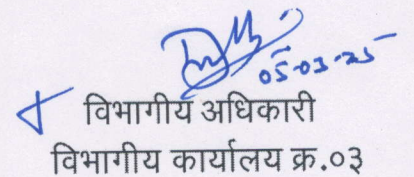 05-03-25
विभागीय अधिकारी
विभागीय कार्यालय क्र.०३